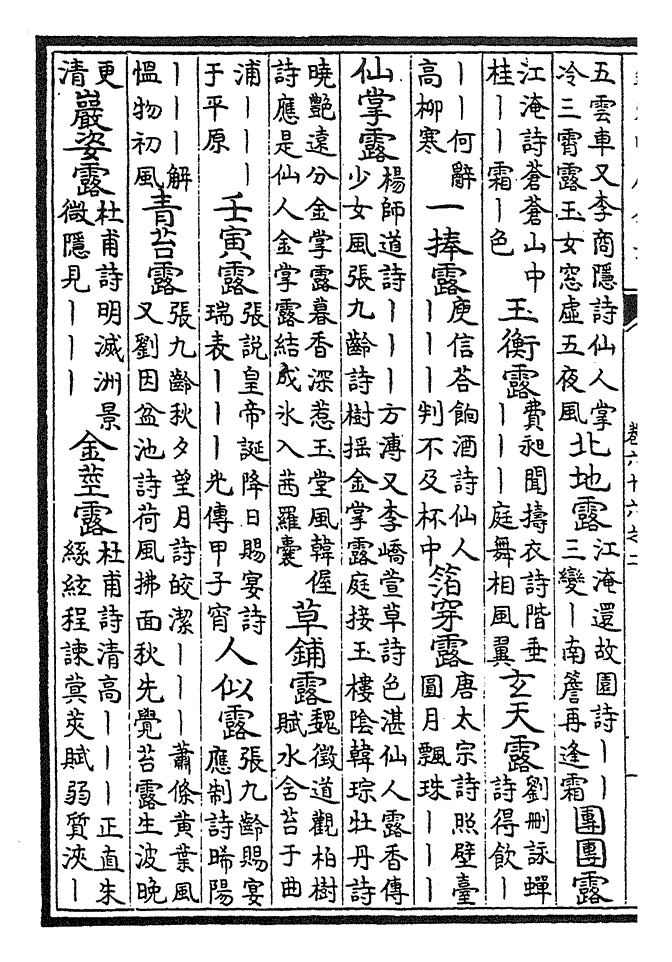 五雲車又李商隱詩仙人掌
冷三霄露玉女窓虛五夜風
北地露
江淹還故園詩丨丨
三變丨南簷再逢霜
團團露
江淹詩蒼蒼山中
桂丨丨霜丨色
玉衡露
費昶聞擣衣詩階垂
丨丨丨庭舞相風翼
玄天露
劉刪詠蟬
詩得飲丨
丨丨何辭
高柳寒
一捧露
庾信荅餉酒詩仙人
丨丨丨判不及杯中
箔穿露
唐太宗詩照壁臺
圓月飄珠丨丨丨
仙掌露
楊師道詩丨丨丨方溥又李嶠萱草詩色湛仙人露香傳
少女風張九齡詩樹揺金掌露庭接玉樓陰韓琮牡丹詩
曉艷遠分金掌露暮香深惹玉堂風韓偓
詩應是仙人金掌露結成氷入茜羅囊
草鋪露
魏徵道觀柏樹
賦水舍苔于曲
浦丨丨丨
于平原
壬寅露
張説皇帝誕降日賜宴詩
瑞表丨丨丨光傳甲子宵
人似露
張九齡賜宴
應制詩晞陽
丨丨丨解
愠物初風
青苔露
張九齡秋夕望月詩皎潔丨丨丨蕭條黄葉風
又劉因盆池詩荷風拂面秋先覺苔露生波晚
更
清
巖姿露
杜甫詩明滅洲景
微隱見丨丨丨
金莖露
杜甫詩清高丨丨丨正直朱
絲絃程諫蓂莢賦弱質浹丨